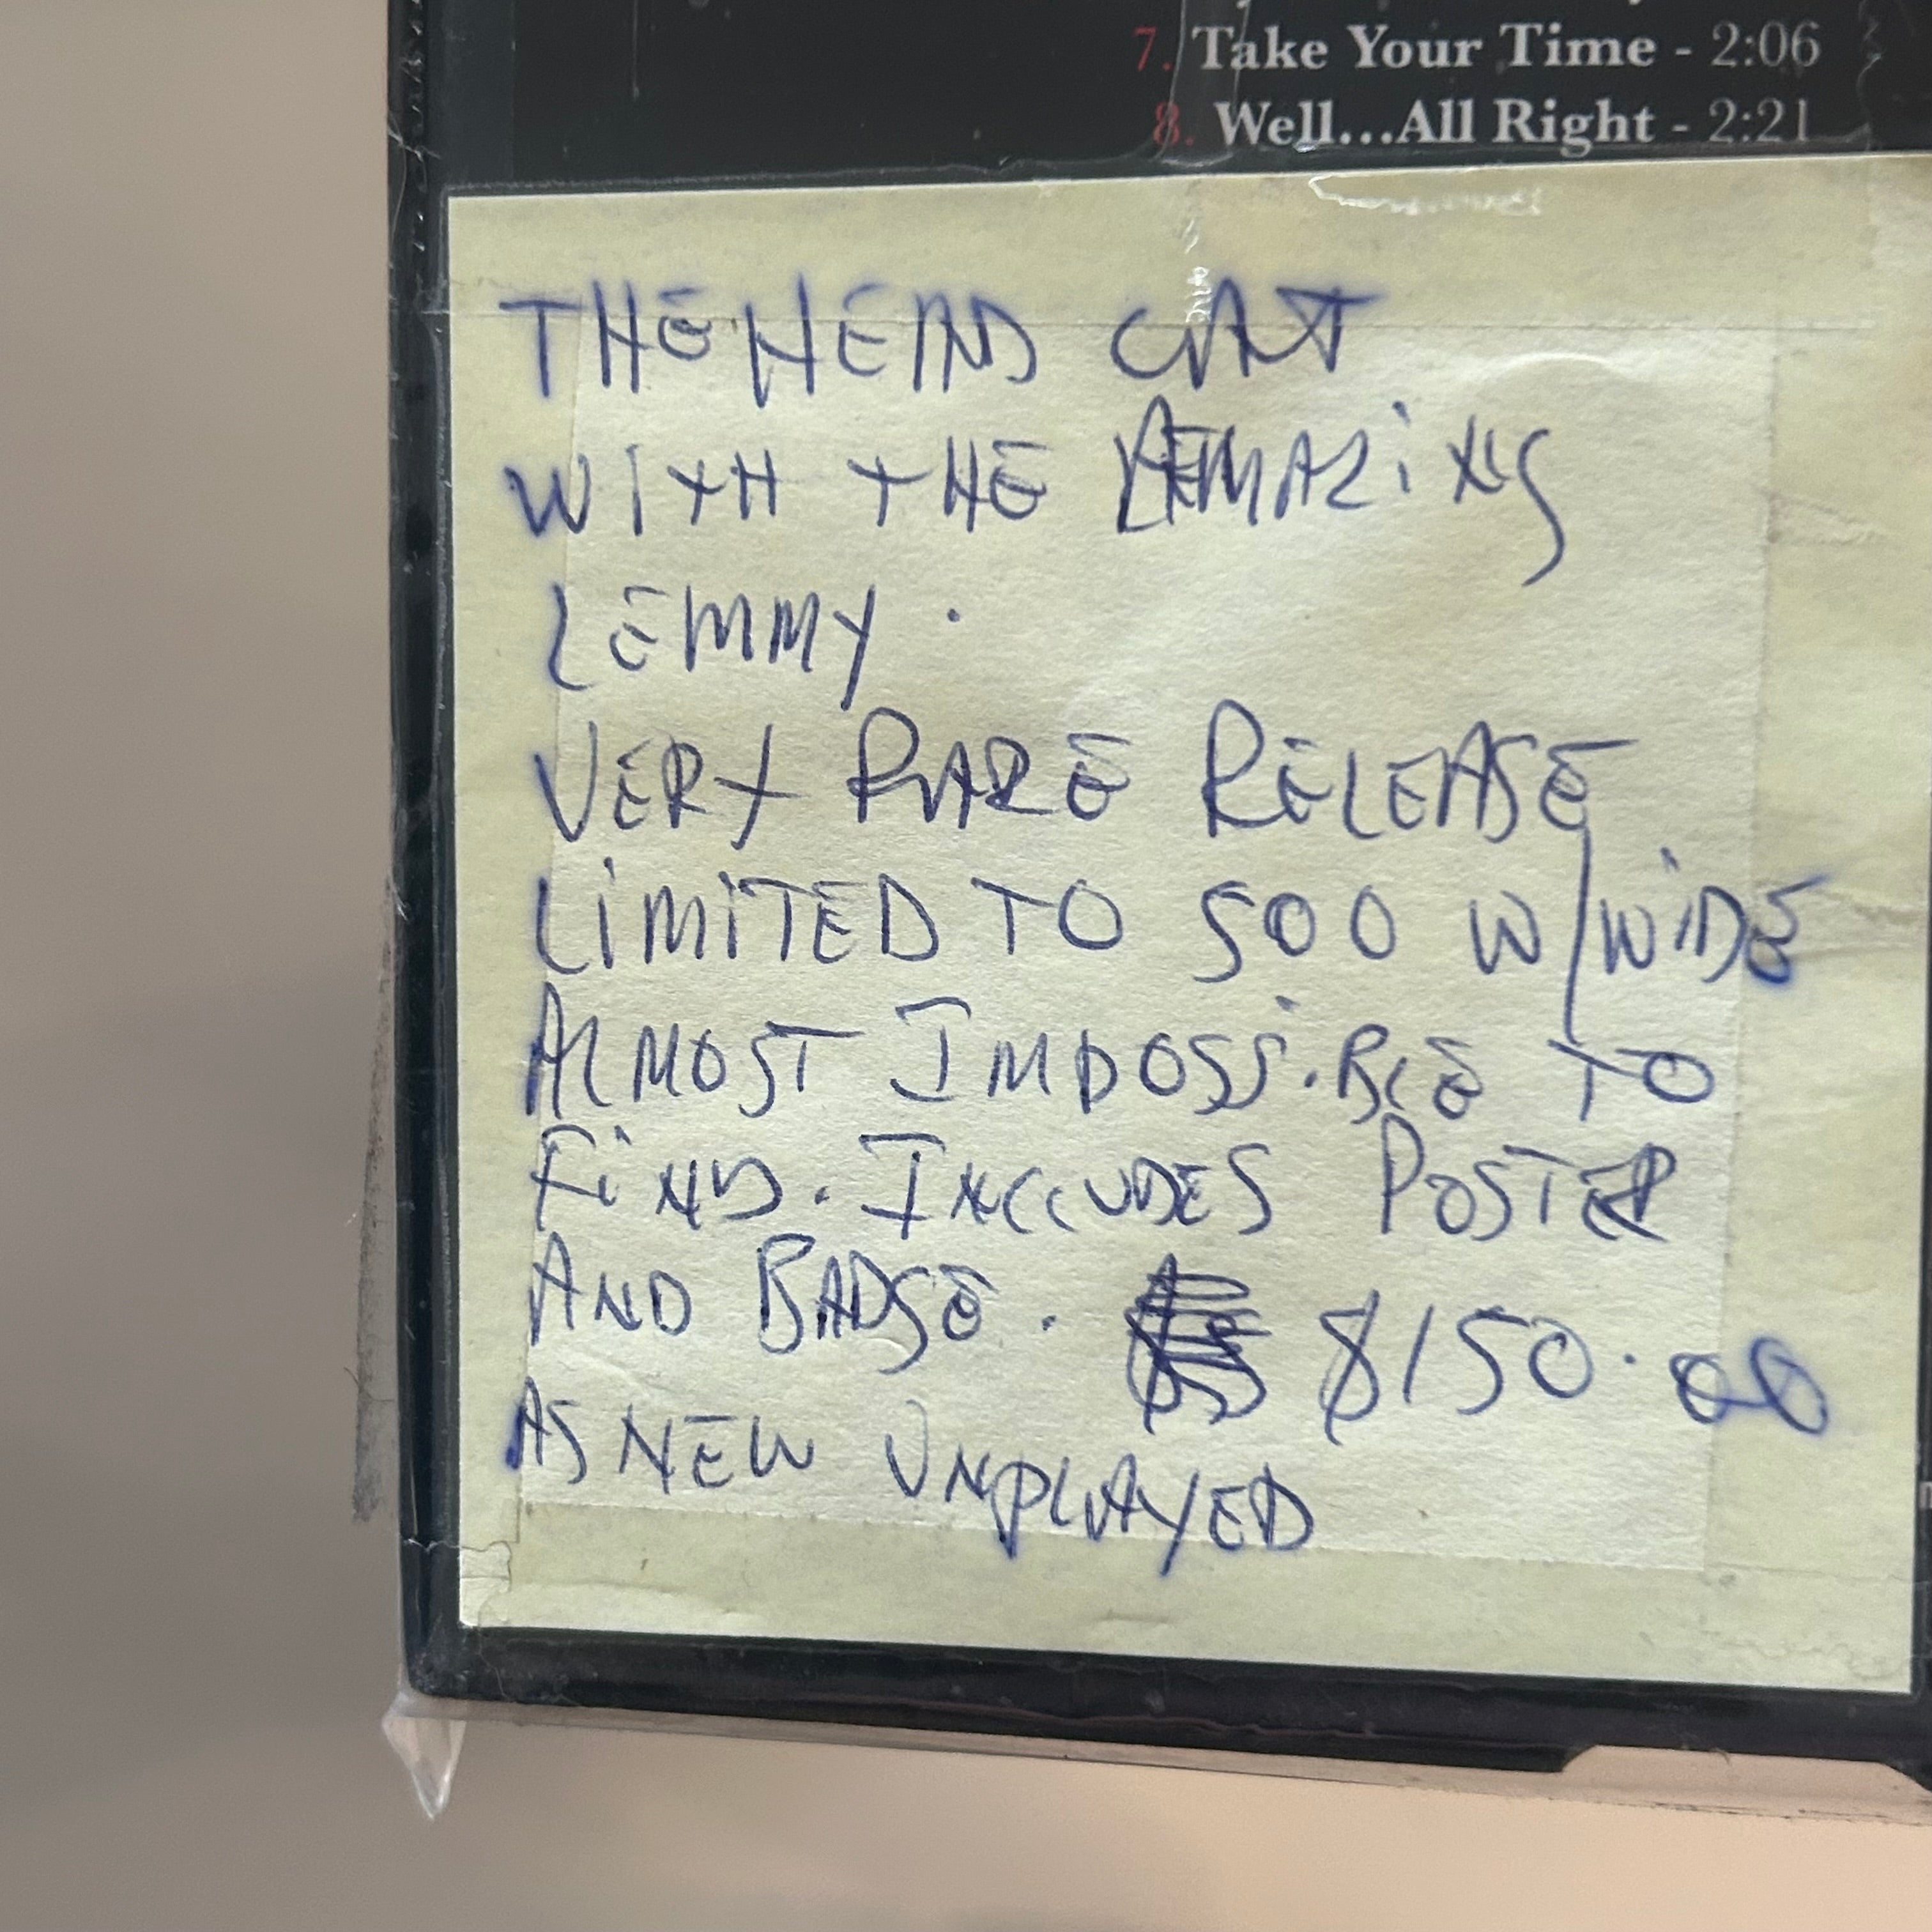 7. Take Your Time - 2:06
8. Well...All Right - 2:21
THE HEAD CAT
WITH THE AMAZING
LEMMY.
VERY RARE RELEASE
LIMITED TO 500 W/WIDE
ALMOST IMPOSSIBLE TO
FIND. INCLUDES POSTER
AND BADGE. $150.00
AS NEW UNPLAYED